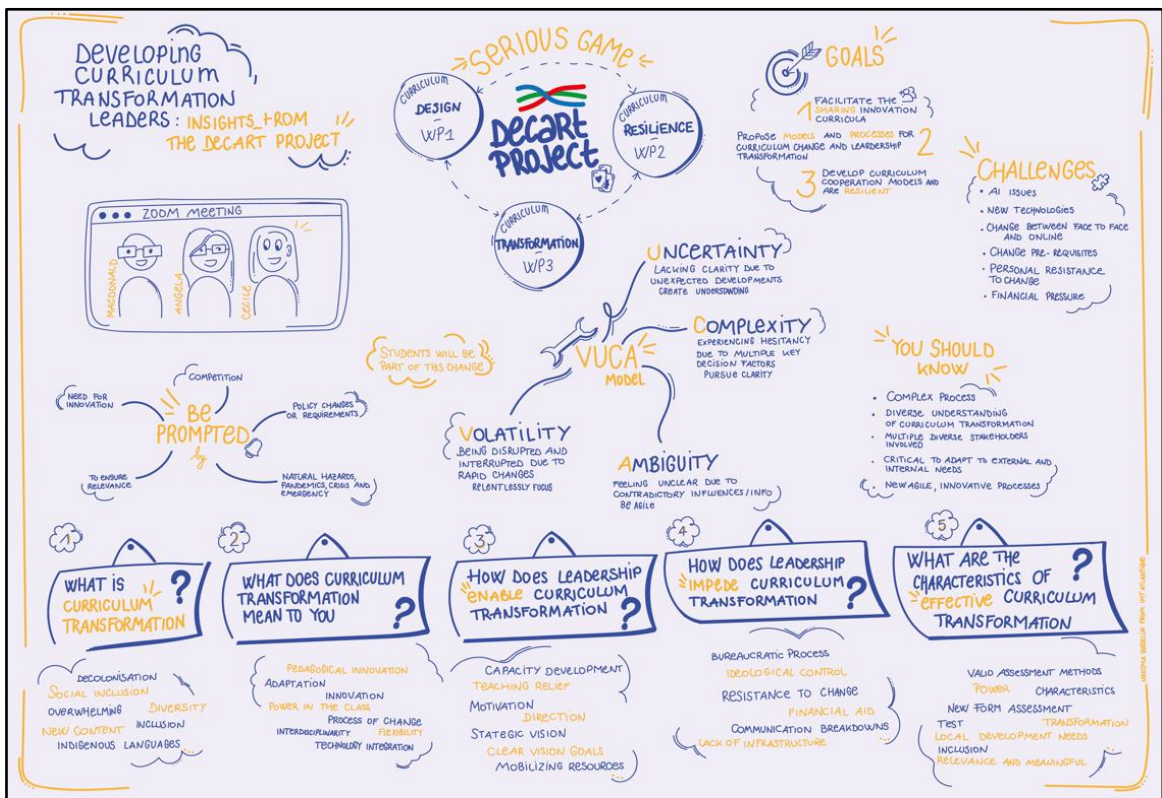 DEVELOPING
CURRICULUM
TRANSFORMATION
LEADERS: INSIGHTS FROM
THE DECART PROJECT
ZOOM MEETING
MACDONALD
ANGELA
CECILE
SERIOUS GAME
CURRICULUM
DESIGN
WP1
DECART
PROJECT
CURRICULUM
RESILIENCE
WP2
CURRICULUM
TRANSFORMATION
WP3
GOALS
1 FACILITATE THE
SHARING INNOVATION
CURRICULA
PROPOSE MODELS AND PROCESSES FOR
CURRICULUM CHANGE AND LEARDERSHIP
TRANSFORMATION
2
3 DEVELOP CURRICULUM
COOPERATION MODELS AND
ARE RESILIENT
CHALLENGES
• AI ISSUES
• NEW TECHNOLOGIES
• CHANGE BETWEEN FACE TO FACE
AND ONLINE
• CHANGE PRE-REQUISITES
• PERSONAL RESISTANCE
TO CHANGE
• FINANCIAL PRESSURE
STUDENTS WILL BE
PART OF THIS CHANGE
VUCA
MODEL
UNCERTAINTY
LACKING CLARITY DUE TO
UNEXPECTED DEVELOPMENTS
CREATE UNDERSTANDING
COMPLEXITY
EXPERIENCING HESITANCY
DUE TO MULTIPLE KEY
DECISION FACTORS
PURSUE CLARITY
VOLATILITY
BEING DISRUPTED AND
INTERRUPTED DUE TO
RAPID CHANGES
RELENTLESSLY FOCUS
AMBIGUITY
FEELING UNCLEAR DUE TO
CONTRADICTORY INFLUENCES/INFO
BE AGILE
BE
PROMPTED
by
COMPETITION
NEED FOR
INNOVATION
POLICY CHANGES
OR REQUIREMENTS
TO ENSURE
RELEVANCE
NATURAL HAZARDS,
PANDEMICS, CRISIS AND
EMERGENCY
YOU SHOULD
KNOW
• COMPLEX PROCESS
• DIVERSE UNDERSTANDING
OF CURRICULUM TRANSFORMATION
• MULTIPLE DIVERSE STAKEHOLDERS
INVOLVED
• CRITICAL TO ADAPT TO EXTERNAL AND
INTERNAL NEEDS
• NEW AGILE, INNOVATIVE PROCESSES
1
WHAT IS
CURRICULUM
TRANSFORMATION
?
DECOLONISATION
SOCIAL INCLUSION
OVERWHELMING DIVERSITY
NEW CONTENT INCLUSION
INDIGENOUS LANGUAGES...
2
WHAT DOES CURRICULUM
TRANSFORMATION
MEAN TO YOU
?
PEDAGOGICAL INNOVATION
ADAPTATION
INNOVATION
POWER IN THE CLASS
PROCESS OF CHANGE
INTERDISCIPLINARITY FLEXIBILITY
TECHNOLOGY INTEGRATION
3
HOW DOES LEADERSHIP
ENABLE CURRICULUM
TRANSFORMATION
?
CAPACITY DEVELOPMENT
TEACHING RELIEF
MOTIVATION
DIRECTION
STATEGIC VISION
CLEAR VISION GOALS
MOBILIZING RESOURCES
4
HOW DOES LEADERSHIP
IMPEDE CURRICULUM
TRANSFORMATION
?
BUREAUCRATIC PROCESS
IDEOLOGICAL CONTROL
RESISTANCE TO CHANGE
FINANCIAL AID
COMMUNICATION BREAKDOWNS
LACK OF INFRASTRUCTURE
5
WHAT ARE THE
CHARACTERISTICS OF
EFFECTIVE CURRICULUM
TRANSFORMATION
?
VALID ASSESSMENT METHODS
POWER CHARACTERISTICS
NEW FORM ASSESSMENT
TEST TRANSFORMATION
LOCAL DEVELOPMENT NEEDS
INCLUSION
RELEVANCE AND MEANINGFUL
FROM IMT ATLANTIQUE